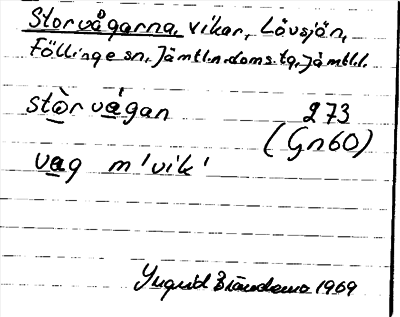 Storvågarna, vikar, Lövsjön,
Föllinge sn, Jämtl.n.doms.tg, Jämtl.l.
stòrvágan 273
(Gn60)
vag m 'vik'
Ingrid 1969